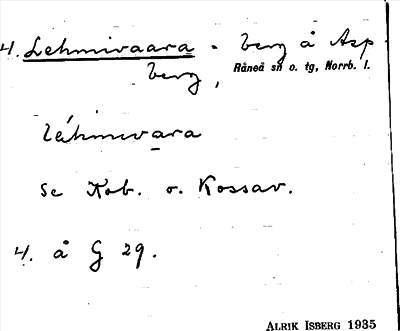 4. Lehmivaara - berg å Asp
berg, Råneå sn o. tg, Norrb. l.
léhmivara
se Kob. o. Kossav.
4. å G 29.
ALRIK ISBERG 1935